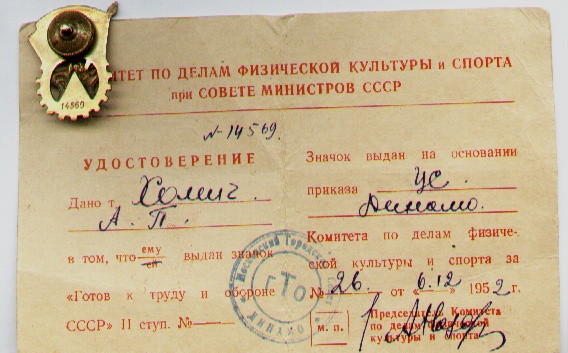 14569
ТЕТ ПО ДЕЛАМ ФИЗИЧЕСКОЙ КУЛЬТУРЫ и СПОРТА
при СОВЕТЕ МИНИСТРОВ СССР
№ 14569.
УДОСТОВЕРЕНИЕ
Дано т. Хомич.
А. П.
в том, что ему
ей выдан значок
«Готов к труду и обороне
СССР» II ступ. №
Московский Городской
ГТО
Значок выдан на основании
приказа ЦС.
Динамо.
Комитета по делам физиче-
ской культуры и спорта за
№ 26. от «6.12» 1952г.
м. п.
Председатель Комитета
по делам физической
культуры и спорта